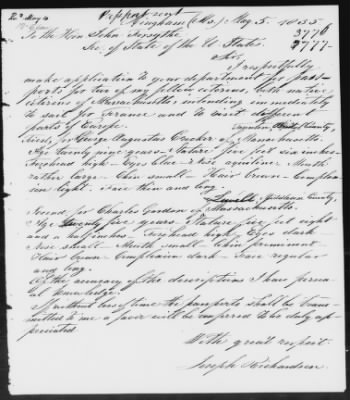 Rec^d May 6
Passport sent
Hingham (Ms.) May 5. 1835
3776
3777
To the Hon John Forsythe
Sec. of State of the U States.
Sir,
I respectfully
make application to your department for pass-
ports for two of my fellow citizens, both native
citizens of Massachusetts, intending immediately
to sail for France and to visit different
parts of Europe.
Taunton, County,
First, for George Augustus Crocker of Massachusetts
Age twenty nine years - Stature five feet six inches
Forehead high - Eyes blue - Nose aquiline - Mouth
rather large - Chin small - Hair brown - Complex-
ion light - Face thin and long.
Lowell, Middlesex County,
Second for Charles Gordon of Massachusetts
Age twenty five years - Stature five feet eight
and a half inches - Forehead high - Eyes dark
Nose small - Mouth small - Chin prominent
Hair brown - Complexion dark - Face regular
and long.
Of the accuracy of the descriptions I have perso-
nal knowledge.
If without loss of time the passports shall be trans-
mitted to me a favor will be conferred to be duly ap-
preciated
With great respect
Joseph Richardson